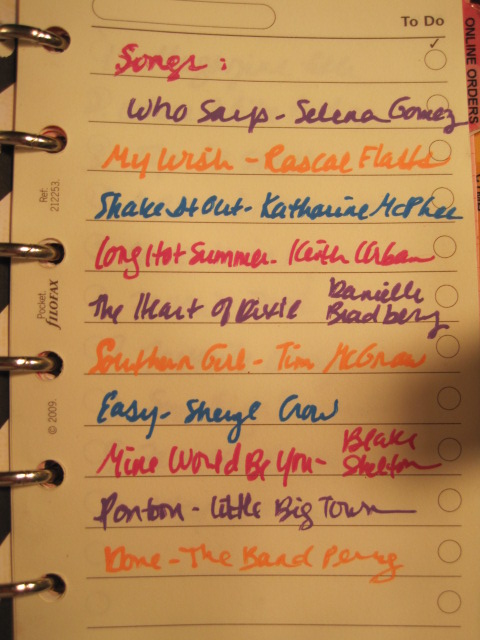 To Do
Songs:
Who Says - Selena Gomez
My Wish - Rascal Flatts
Shake It Out - Katharine McPhee
Long Hot Summer - Keith Urban
The Heart Of Dixie Danielle Bradbery
Southern Girl - Tim McGraw
Easy - Sheryl Crow
Mine Would Be You - Blake Shelton
Pontoon - Little Big Town
Done - The Band Perry
ONLINE ORDERS
Ref. 212253.
Pocket. fiLOFAX
© 2009.